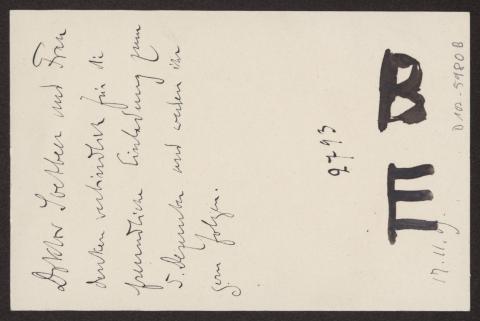 Doktor Soetbeer und Frau
danken verbindlichst für die
freundliche Einladung zum
5. Dezember und werden ihr
gern folgen.
2793
17.11.09.
D 102-5980 B